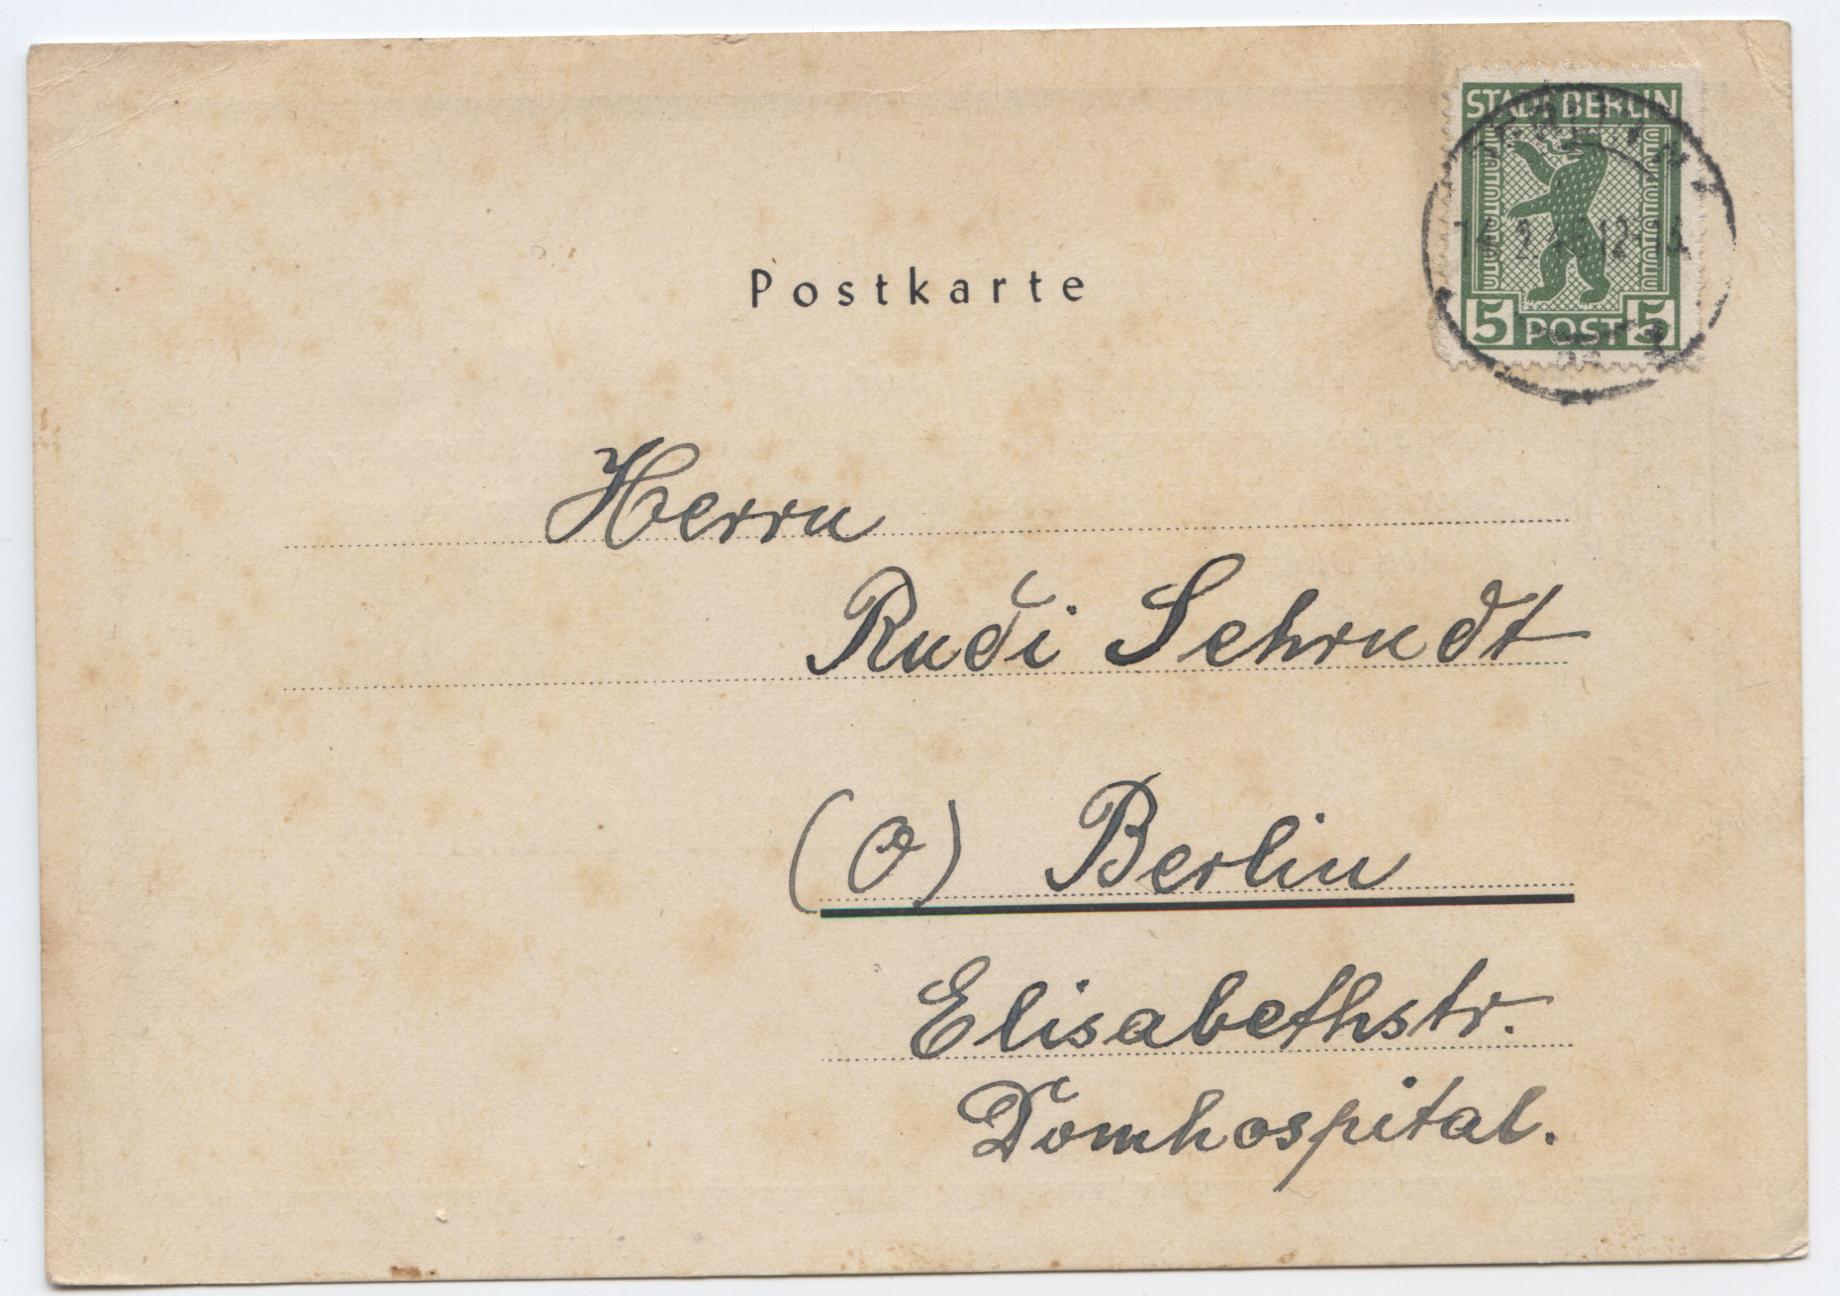 STADT BERLIN
5 POST 5
Postkarte
Herrn
Rudi Schrudt
(O) Berlin
Elisabethstr.
Domhospital.